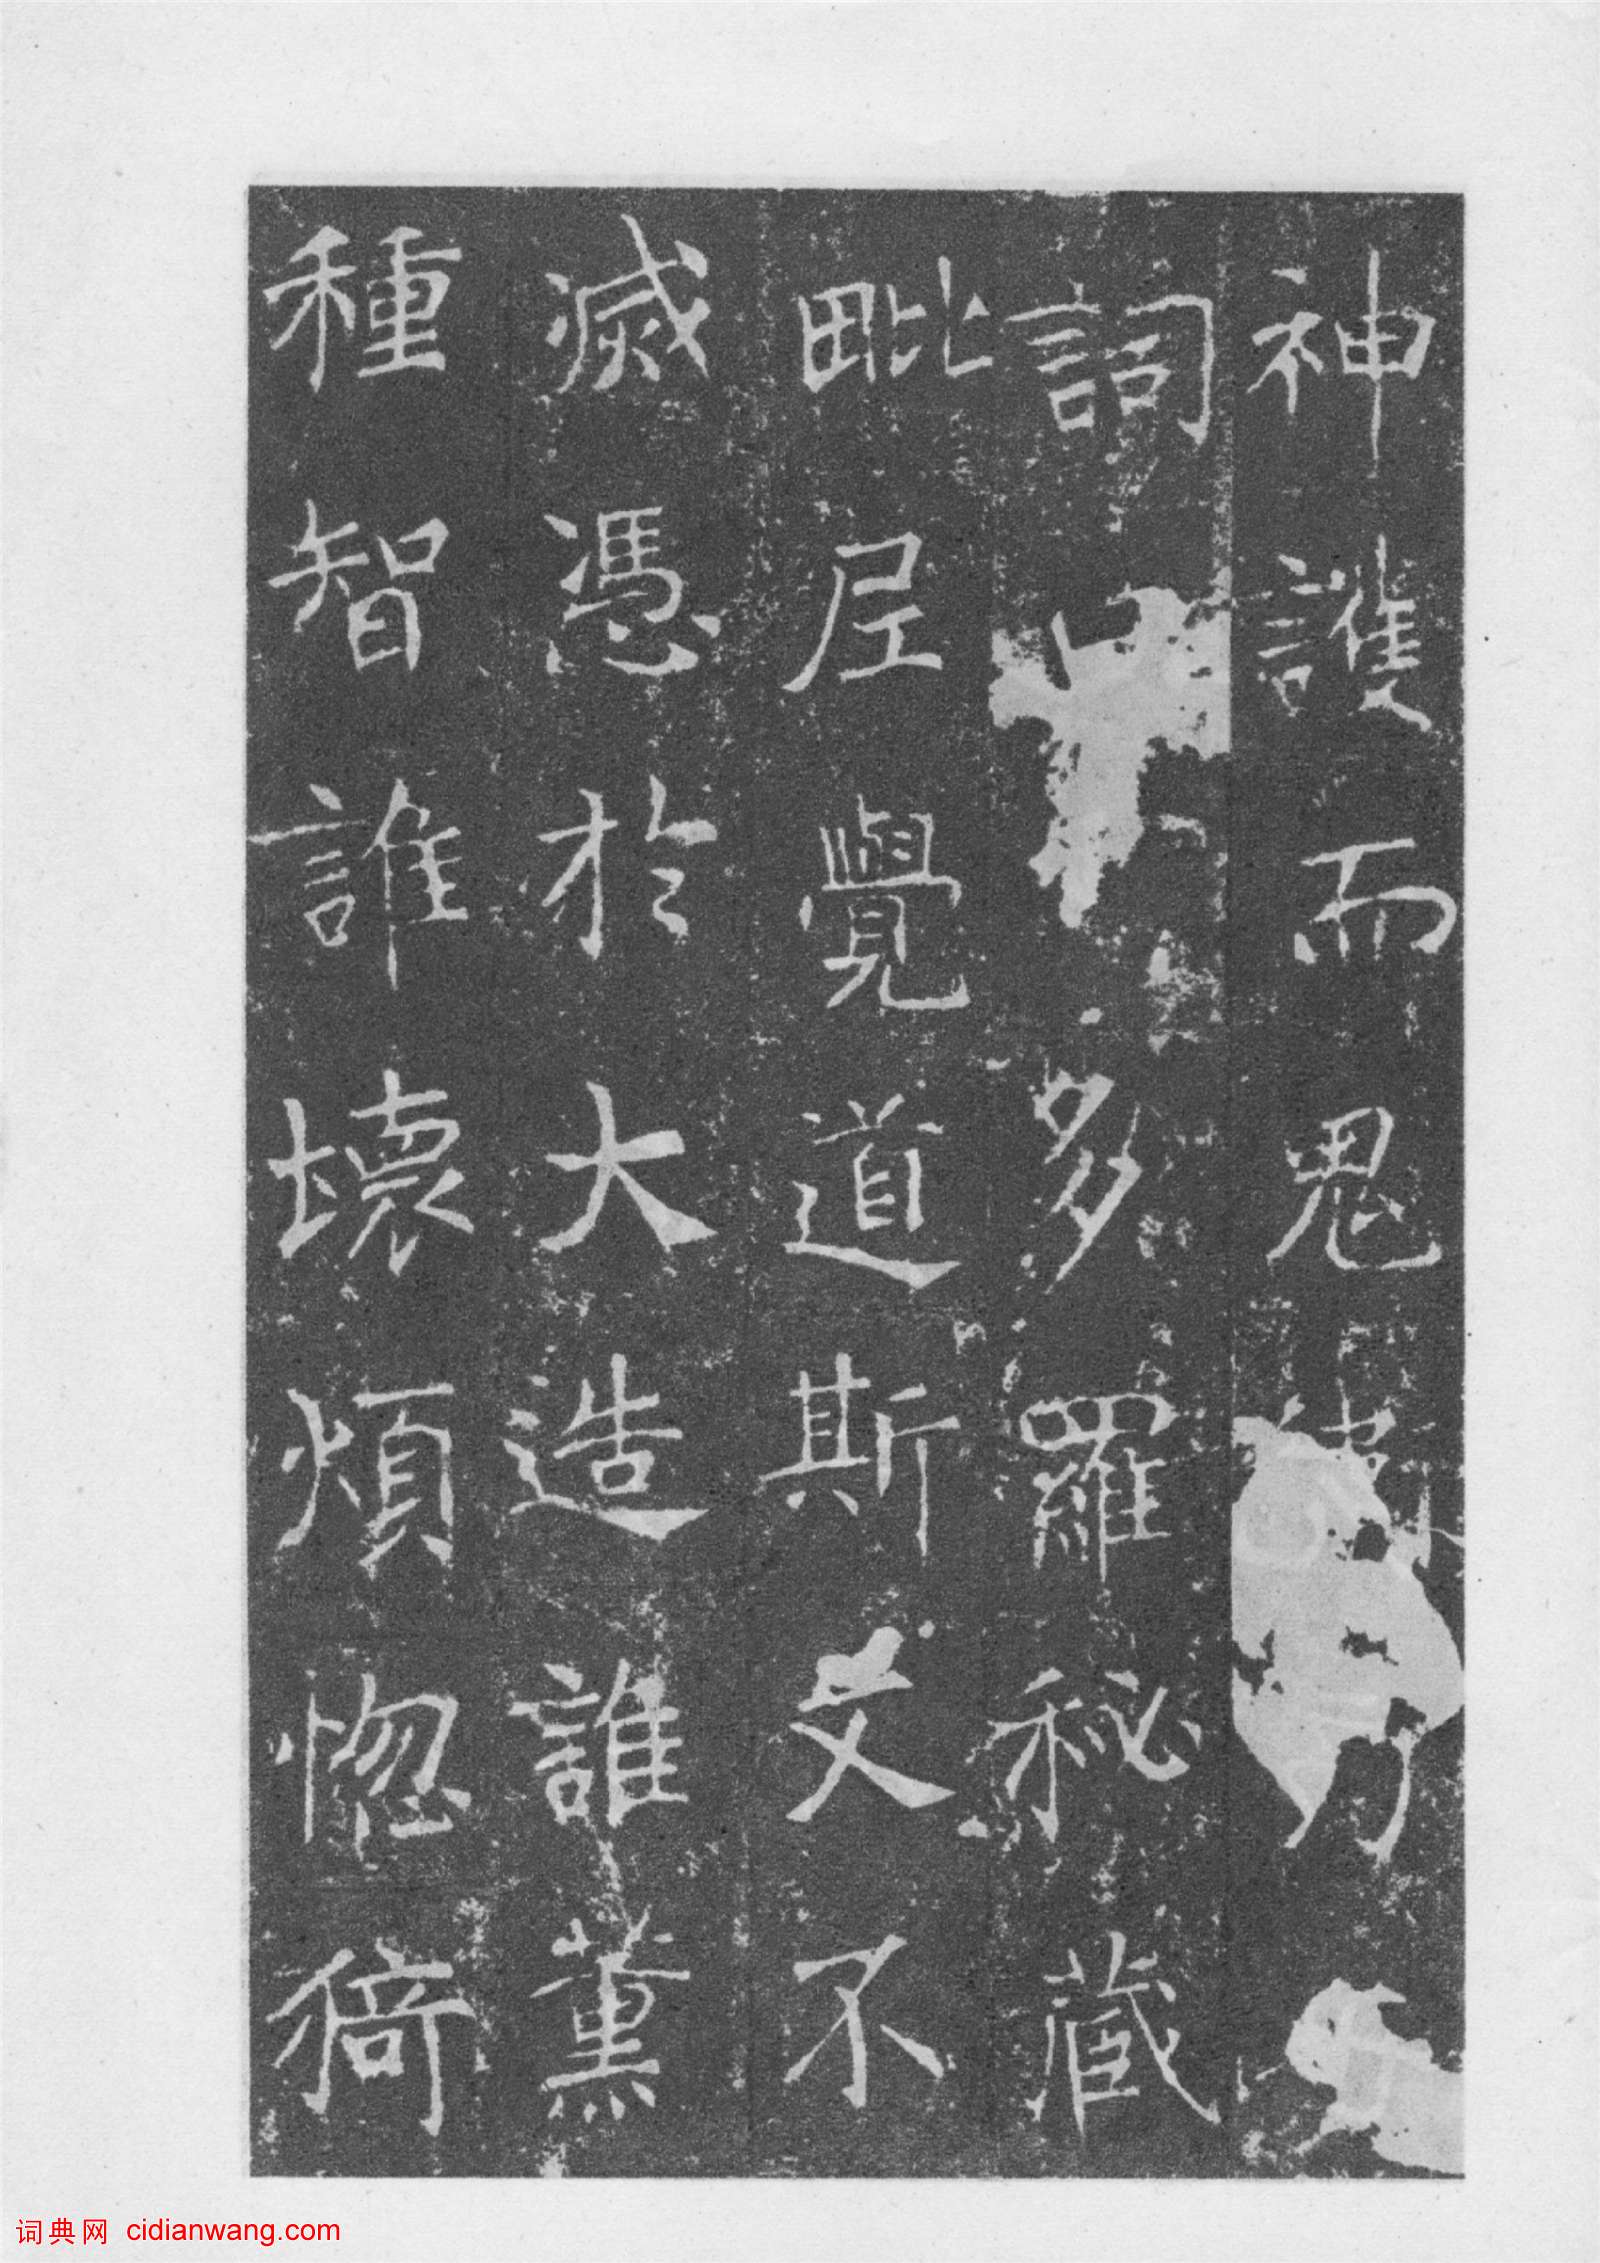 神護而鬼
詞多羅秘藏
毗尼覺道斯文不
滅憑於大造誰薰
種智誰壞煩惚猗
词典网 cidianwang.com